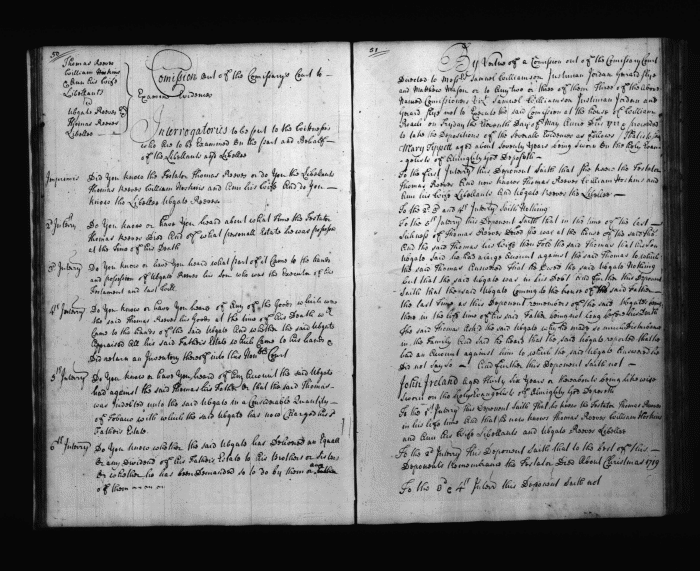 50
Thomas Reeves
William Hoskins
& Ann his Wife
Libellants
Ubgate Reeves Exr
Thomas Reeves
Libellee
Comission out of the Comissarys Court to
Examine Evidences
Interrogatories to be put to the Witnesses
who are to be Examined On the part and Behalf
of the Libellants agst Libellee
Imprimis Did you know the Testator Thomas Reeves or do you the Libellants
Thomas Reeves William Hoskins and Ann his Wife And do you
know the Libellee Ubgate Reeves
2d Intery Do You know or have You heard about what time the Testator
Thomas Reeves Died And of what personal Estate he was possessed
at the time of his Death
3d Intery Do You know or have You heard what part of it Came to the hands
and possession of Ubgate Reeves his Son who was the Executor of his
Testament and last Will
4th Interry Do You know or have You heard of Any of the Goods which were
the said Thomas Reeves his Goods at the time of his Death wch
Came to the hands of the said Ubgate And whether the said Ubgate
Appraised All his said Fathers Estate which Came to his hands &
Did return an Inventory thereof into this Court
5th Interry Do You know or have You heard of Any Account the said Ubgate
had against the said Thomas his Father & that the said Thomas
was Indebted unto the said Ubgate to a Considerable Quantity
of Tobacco with which the said Ubgate has now Charged his
Fathers Estate
6th Interry Do You know whether the said Ubgate has Delivered an Equall
or any Dividend of his Fathers Estate to his Brothers or Sisters
& whether he has been Demanded so to do by them or
of them
51
By Virtue of a Comission out of the Comissary Court
Directed to Messrs Samuel Williamson Justinian Jordan Gerard Slye
and Matthew Wason or to Any two or three of them Three of the above
Named Comissioners Vizt Samuel Williamson Justinian Jordan and
Gerard Slye met to Execute the said Comission at the house of William
on Fryday the Eleventh Day of May Anno Dni & proceeded
to take the Depositions of the Severall Evidences as follows
Mary Tippett aged about Seventy Years being Sworn On the Holy Evan
gelists of Almighty God Deposeth
To the first Interry this Deponent Saith that She knew the Testator
Thomas Reeves And now knows Thomas Reeves William Hoskins and
Ann his Wife Libellants And Ubgate Reeves the Libellee
To the 2d 3d and 4th Interry Saith Nothing
To the 5th Interry this Deponent Saith that in the time of the last
Sickness of Thomas Reeves Decd She was at the house of the said
And the said Thomas his Wife then Told the said Thomas that his Son
Ubgate Said he had a large Account against the said Thomas to which
the said Thomas Answered that he owed the said Ubgate Nothing
but that the said Ubgate was in his Debt And further this Deponent
Saith that the said Ubgate Coming to the house of his said Father
the last time as this Deponent remembers of the said Ubgates being
there in the life time of his said Father being not long before his Death
the said Thomas Asked the said Ubgate why he made so much Disturbance
in the Family And that he heard that the said Ubgate reported that he
had an Account against him to which the said Ubgate Answered he
Did not Say so And further this Deponent Saith not
John Ireland aged thirty Six Years or thereabouts being likewise
Sworn on the Holy Evangelists of Almighty God Deposeth
To the 1st Interry this Deponent Saith That he knew the Testator Thomas Reeves
in his life time And that he now knows Thomas Reeves William Hoskins
and Ann his Wife Libellants and Ubgate Reeves Libellee
To the 2d Interry this Deponent Saith that to the best of this
Deponents Remembrance the Testator Died About Christmas 1719
To the 3d & 4th Interr this Deponent Saith not